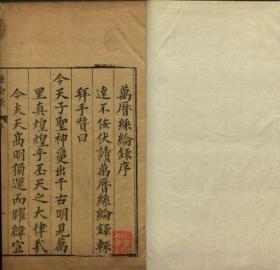 萬曆絲綸錄序
達不佞伏讀萬曆絲綸錄輒
拜手贊曰
今天子聖神夐出千古明見萬
里真煌煌乎丕天之大律哉
今夫天高明獨運而曜緯宣